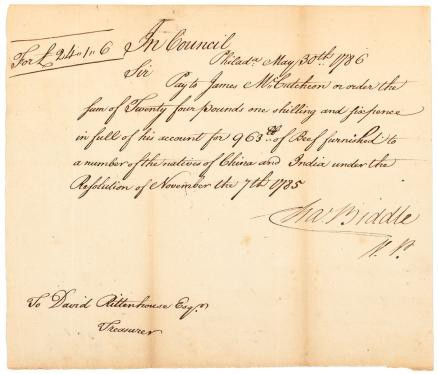 For £ 24..1..6
In Council
Philada. May 30th 1786
Sir
Pay to James McCutcheon or order the
sum of Twenty four pounds one shilling and sixpence
in full of his account for 963 lb of Beef furnished to
a number of the natives of China and India under the
Resolution of November the 7th 1785
Cha Biddle
V. P.
To David Rittenhouse Esqr
Treasurer